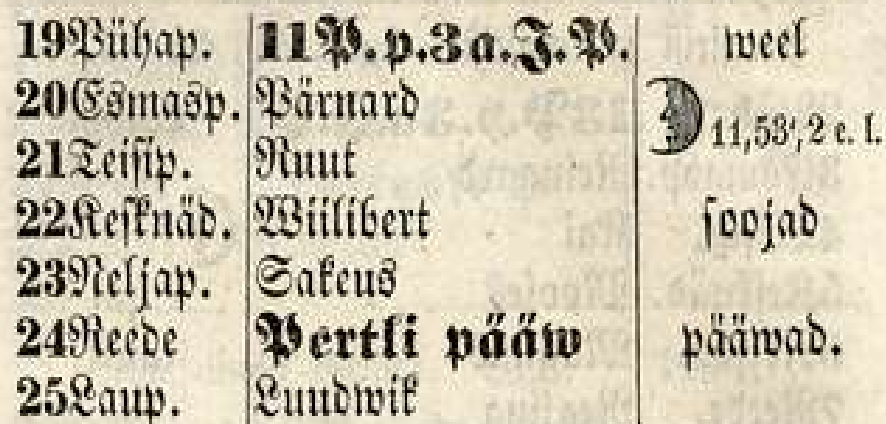 19 Pühap. 11 P. p. 3 a. J. P. weel
20 Esmasp. Pärnard 11,53',2 e. l.
21 Teisip. Ruut
22 Kesknäd. Wiilibert soojad
23 Neljap. Sakeus
24 Reede Pertli pääw pääwad.
25 Laup. Luudwik